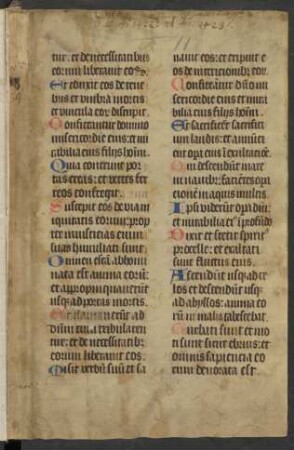 tur: et de necessitatibus
eorum liberauit eos.
Et eduxit eos de tene
bris et umbra mortis:
et vincula eor disrupit.
Confiteantur domino
misericordie eius: et mi
rabilia eius filijs hoīm.
Quia contriuit por
tas ereas: et vectes fer
reos confregit.
Suscepit eos de via in
iquitatis eorum: prop
ter iniusticias enim
suas humiliati sunt.
Omnem escā abhomi
nata est anima eorū:
et appropinquauerūt
usqz ad portas mortis.
Et clamauerūt ad
dūm cum tribularen
tur: et de necessitatibz
eorum liberauit eos.
Misit verbū suū et sa
nauit eos: et eripuit e
os de interitionibz eor.
Confiteantur dūo mi
sericordie eius: et mira
bilia eius filijs hoīm.
Et sacrificēt sacrifici
um laudis: et annūci
ent opa eius ī exultacōe.
Qui descendūt mare
in nauibz: faciētes opa
cionē in aquis multis.
Ipsi viderūt opa dūi:
et mirabilia eī ī profūdo
Dixit et stetit spiritꝰ
procelle: et exaltati
sunt fluctus eius.
Ascendūt usqz ad ce
los et descendūt usqz
ad abyssos: anima eo
rū in malis tabescebat.
Turbati sunt et mo
ti sunt sicut ebrius: et
omnis sapiencia eo
rum deuorata est.